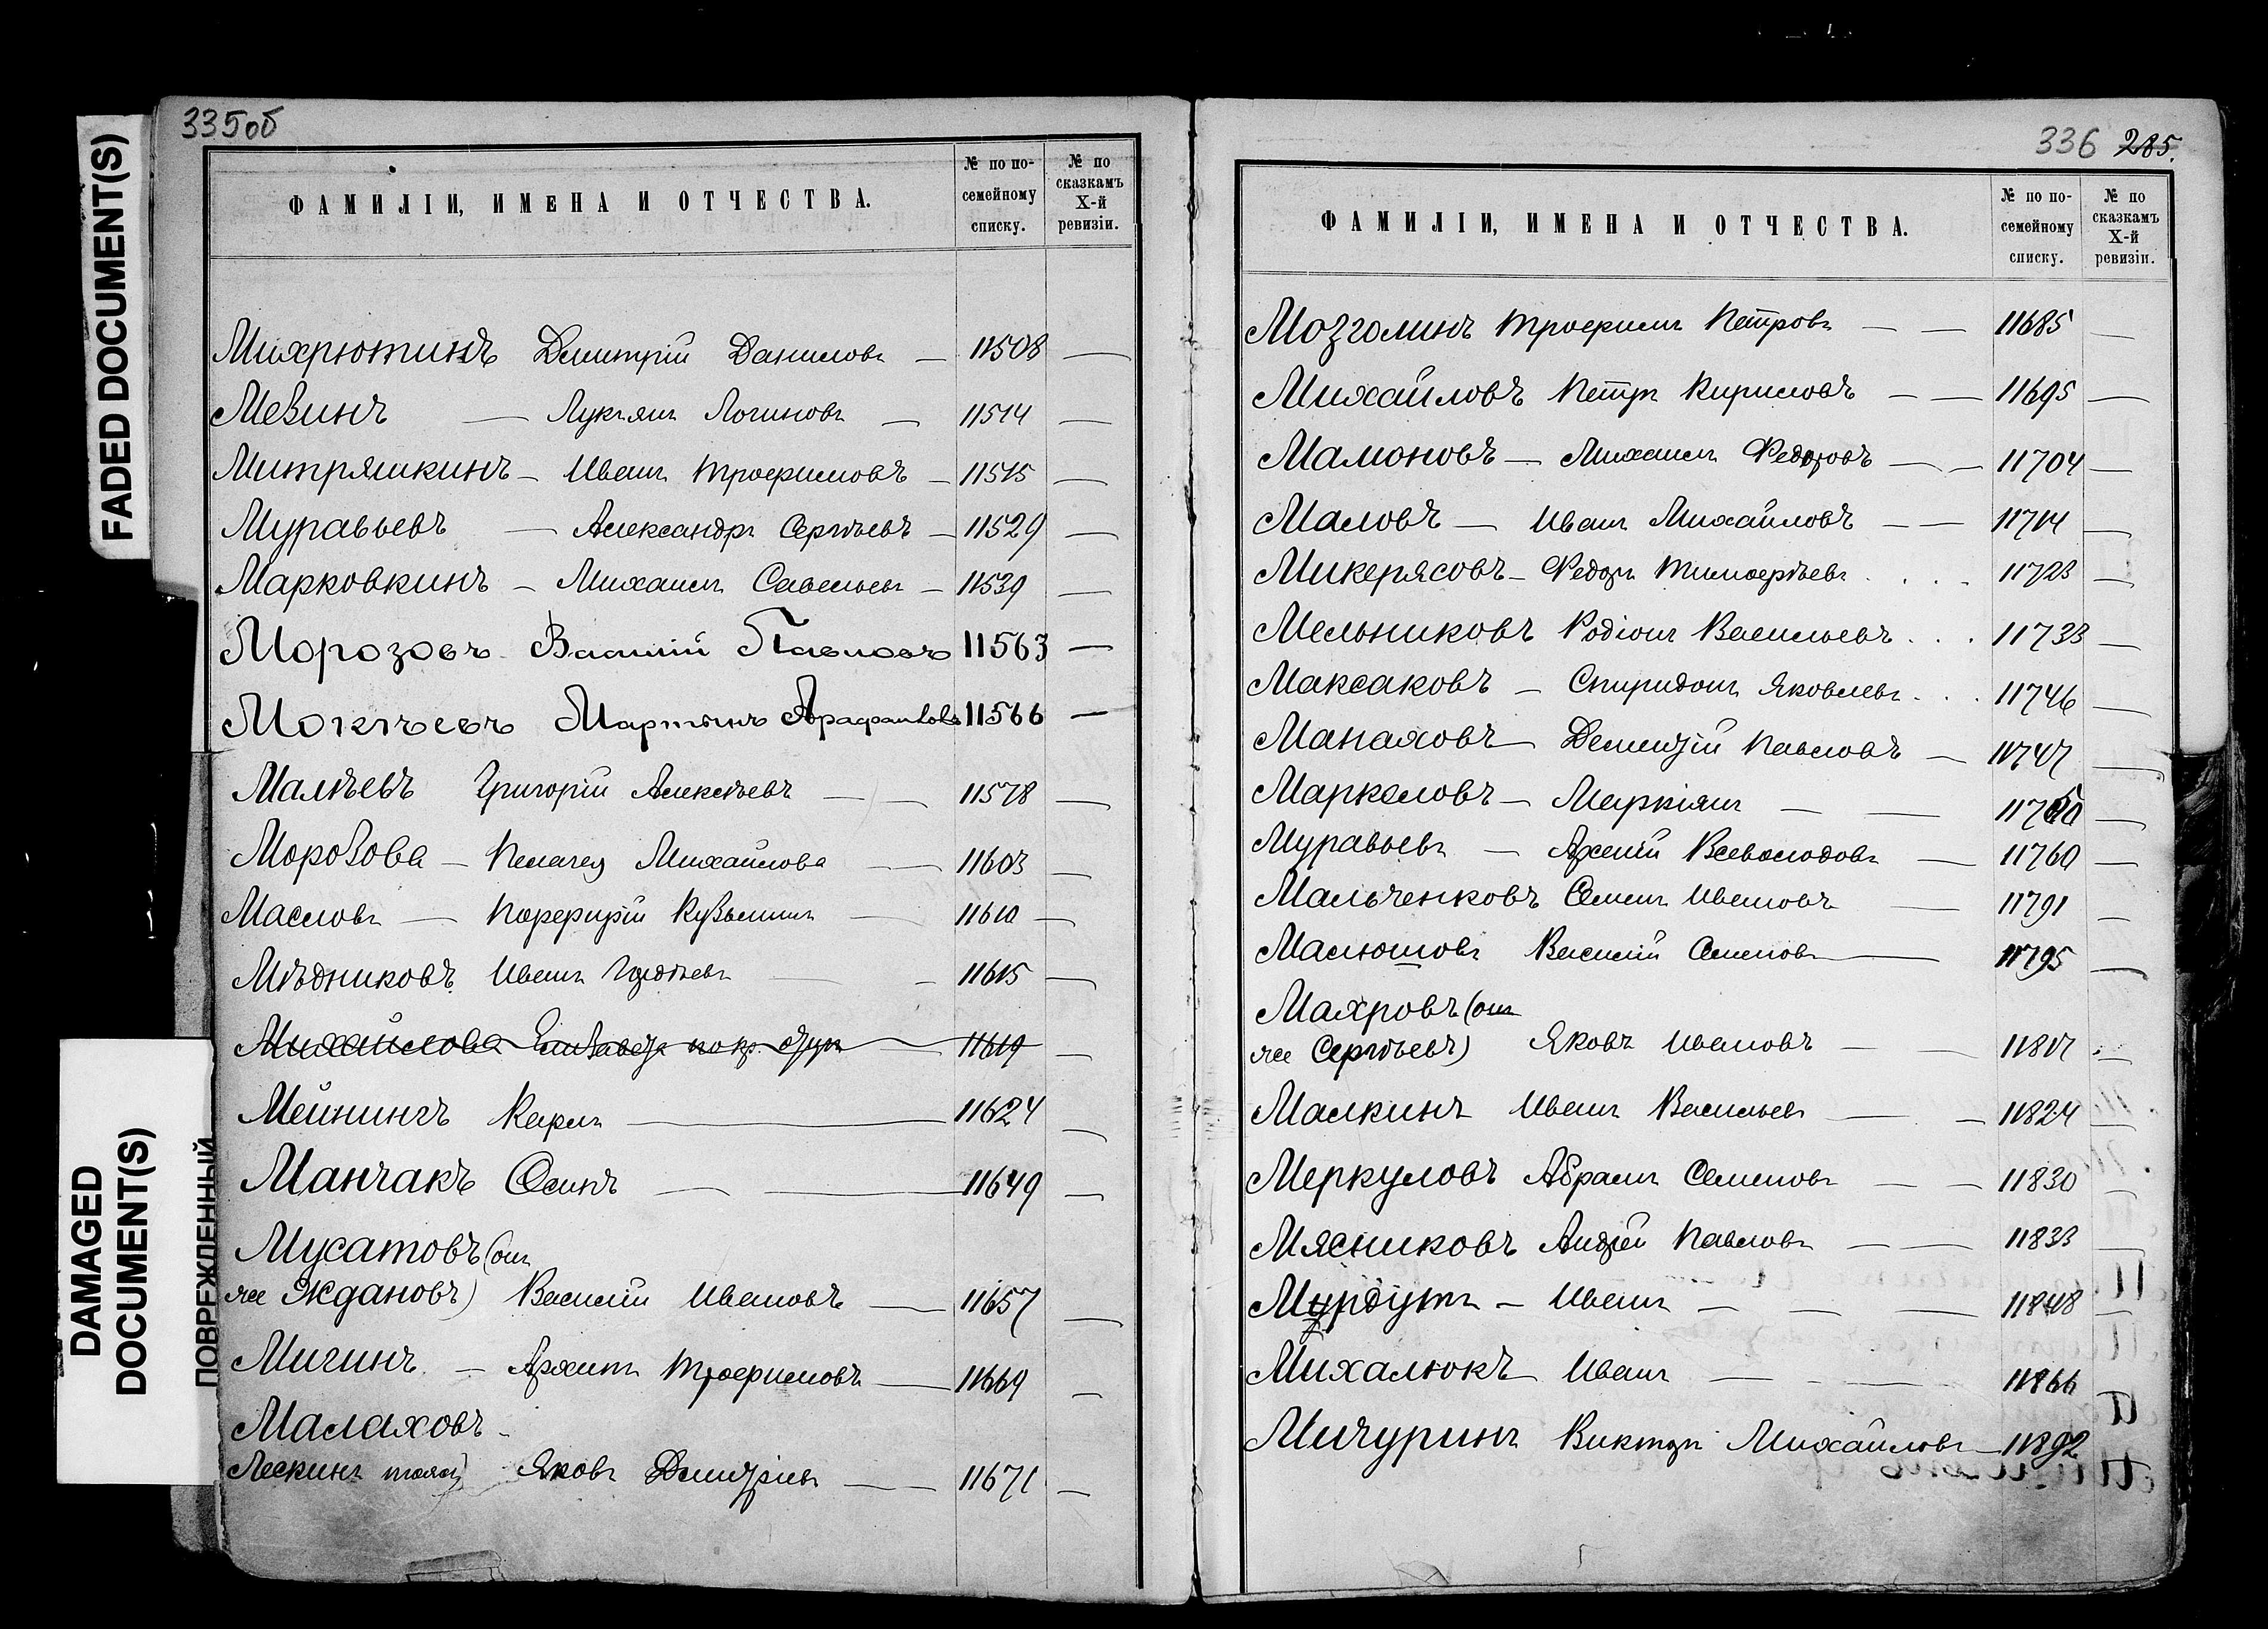 335об
FADED DOCUMENT(S)
DAMAGED
DOCUMENT(S)
ПОВРЕЖДЕННЫЙ
ФАМИЛІИ, ИМЕНА И ОТЧЕСТВА. № по посемейному списку. № по сказкамъ X-й ревизіи.
Михрютинъ Дмитрій Даниловъ — 11508 —
Мезинъ — Лукьянъ Логиновъ — 11514 —
Митряшкинъ — Иванъ Трофимовъ — 11515 —
Муравьевъ — Александръ Сергѣевъ — 11529 —
Марковкинъ — Михаилъ Савельевъ — 11539 —
Морозовъ Василій Павловъ 11563 —
Мокѣевъ Мартынъ 11566 —
Малѣевъ Григорій Алексѣевъ — — 11578 —
Морозова — Пелагея Михайлова — 11603 —
Масловъ — Порфирій Кузьминъ — 11610 —
Мѣдниковъ Иванъ Гордѣевъ — — 11615 —
Михайлова Елизавета по кр. 11619 —
Мейнингъ Карлъ — 11624 —
Манчакъ Осипъ — — 11649 —
Мусатовъ (онъ
же Ждановъ) Василій Ивановъ — 11657 —
Мигинъ — Архипъ Трофимовъ — 11669 —
Малаховъ —
Лескинъ тожъ) Яковъ Дмитріевъ — — 11671 —
336 285.
ФАМИЛІИ, ИМЕНА И ОТЧЕСТВА. № по посемейному списку. № по сказкамъ X-й ревизіи.
Мозголинъ Трофимъ Петровъ — — 11685 —
Михайловъ Петръ Кириловъ — — 11695 —
Мамоновъ — Михаилъ Федоровъ — — 11704 —
Маловъ — Иванъ Михайловъ — — 11714 —
Микерясовъ — Федоръ Тимофѣевъ . . . . 11723 —
Мельниковъ Родіонъ Васильевъ . . . 11733 —
Максаковъ — Спиридонъ Яковлевъ . . . 11746 —
Манаховъ — Дмитрій Павловъ — 11747 —
Маркеловъ — Маркіянъ — — 11750 —
Муравьевъ — Арсеній Всеволодовъ — 11760 —
Мальченковъ Семенъ Ивановъ — 11791 —
Масюшовъ Василій Семеновъ — 11795 —
Махровъ (онъ
же Сергѣевъ) Яковъ Ивановъ — — 11817 —
Малкинъ Иванъ Васильевъ — — 11824 —
Меркуловъ Абрамъ Семеновъ — — 11830 —
Мясниковъ Андрей Павловъ — — 11833 —
Мурдутъ — Иванъ — — — 11848 —
Михалюкъ Иванъ — — — 11866
Мичуринъ Викторъ Михайловъ — 11892